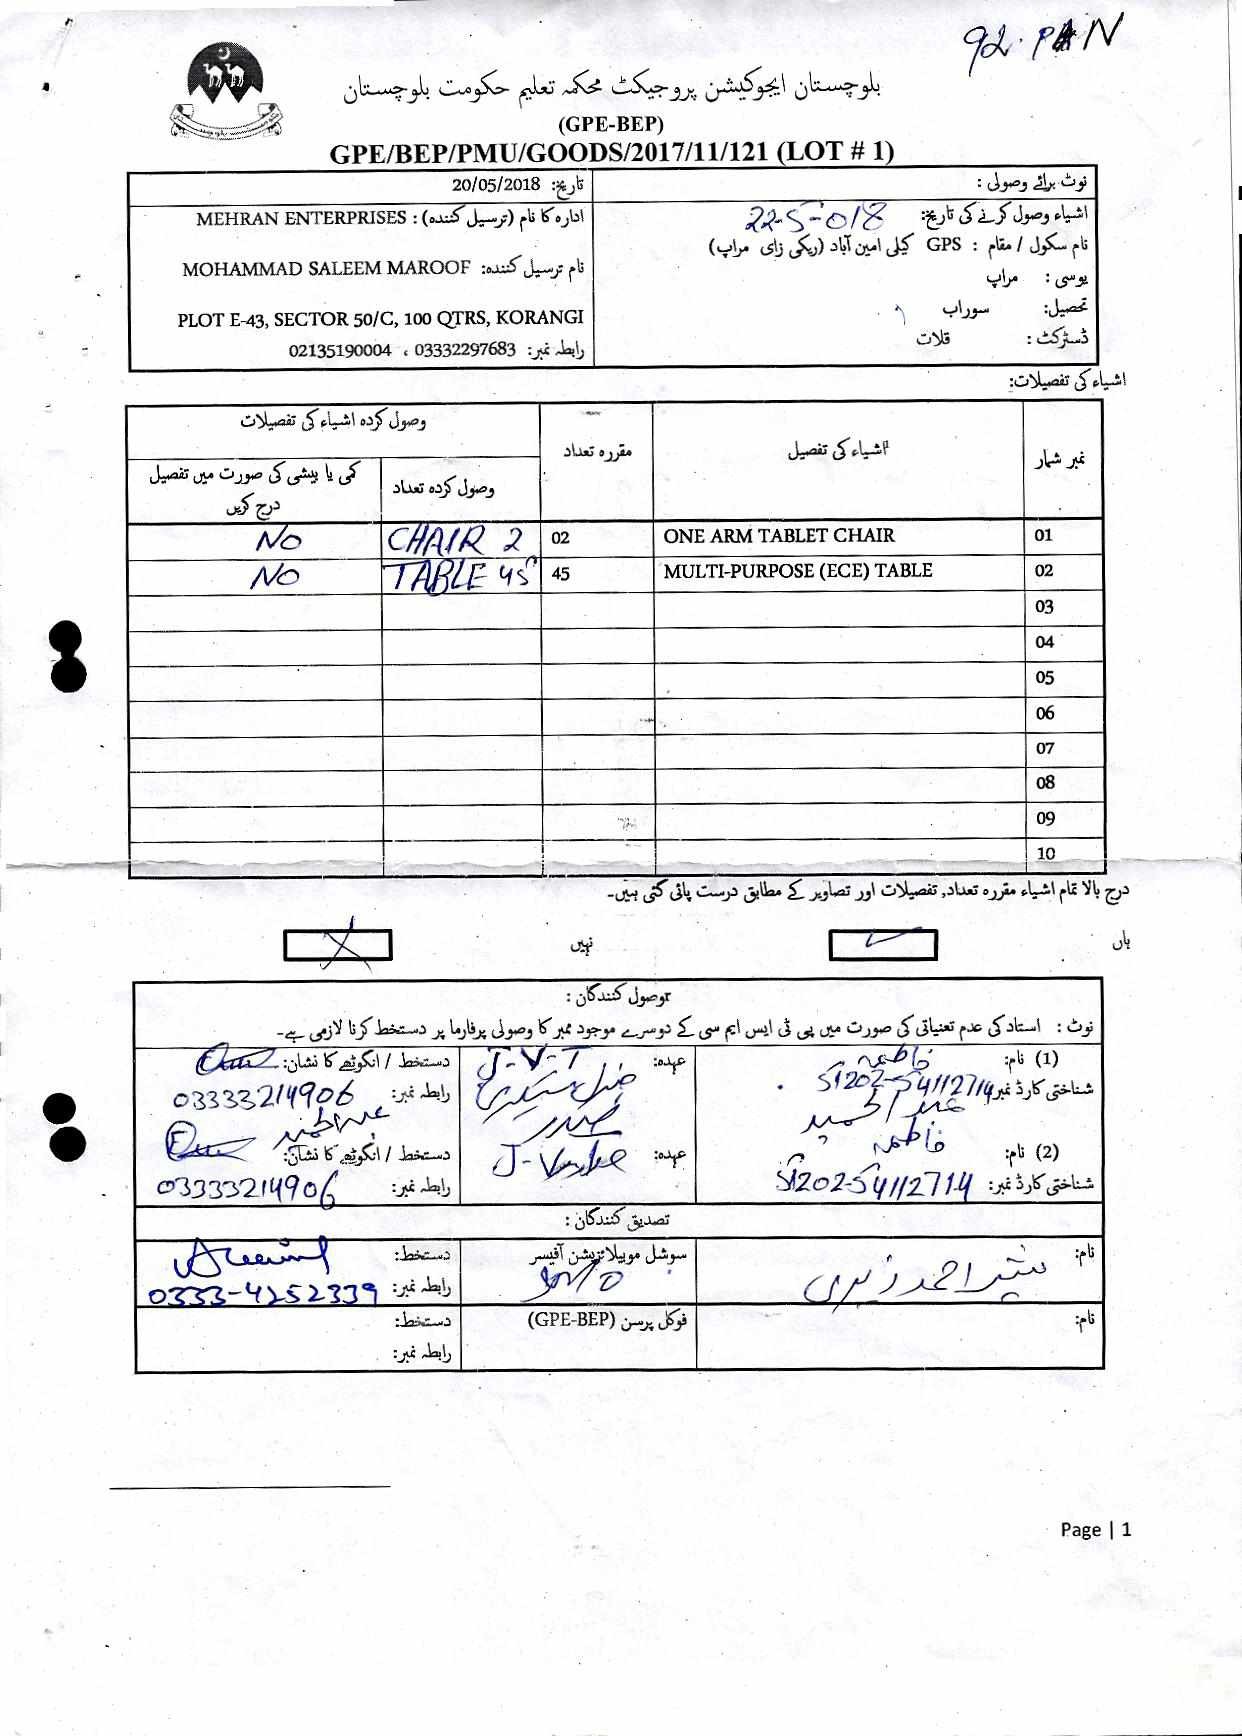 92. PAN
بلوچستان ایجوکیشن پروجیکٹ محکمہ تعلیم حکومت بلوچستان
(GPE-BEP)
GPE/BEP/PMU/GOODS/2017/11/121 (LOT # 1)
نوٹ برائے وصولی :
اشیاء وصول کرنے کی تاریخ: 22-5-018
نام سکول / مقام : GPS کیلی امین آباد (ریکی زای مراپ)
یوسی : مراپ
تحصیل: سوراب
ڈسٹرکٹ : قلات
تاریخ: 20/05/2018
ادارہ کا نام (ترسیل کنندہ) : MEHRAN ENTERPRISES
نام ترسیل کنندہ: MOHAMMAD SALEEM MAROOF
PLOT E-43, SECTOR 50/C, 100 QTRS, KORANGI
رابطہ نمبر: 03332297683 ، 02135190004
اشیاء کی تفصیلات:
نمبر شمار اشیاء کی تفصیل مقررہ تعداد وصول کردہ اشیاء کی تفصیلات
وصول کردہ تعداد کمی یا بیشی کی صورت میں تفصیل درج کریں
01 ONE ARM TABLET CHAIR 02 CHAIR 2 NO
02 MULTI-PURPOSE (ECE) TABLE 45 TABLE 45 NO
03
04
05
06
07
08
09
10
درج بالا تمام اشیاء مقررہ تعداد, تفصیلات اور تصاویر کے مطابق درست پائی گئی ہیں۔
ہاں نہیں
وصول کنندگان :
نوٹ : استاد کی عدم تعیناتی کی صورت میں پی ٹی ایس ایم سی کے دوسرے موجود ممبر کا وصولی پرفارما پر دستخط کرنا لازمی ہے۔
(1) نام: فاطمہ عہدہ: J-V-T دستخط / انگوٹھے کا نشان:
شناختی کارڈ نمبر 51202-54112714 رابطہ نمبر: 03333214906
عبدالحمید صدر
(2) نام: فاطمہ عہدہ: دستخط / انگوٹھے کا نشان:
شناختی کارڈ نمبر: 51202-54112714 رابطہ نمبر: 03333214906
تصدیق کنندگان :
نام: احمد سوشل موبیلائزیشن آفیسر دستخط:
رابطہ نمبر: 0333-4252339
نام: فوکل پرسن (GPE-BEP) دستخط:
رابطہ نمبر:
Page | 1